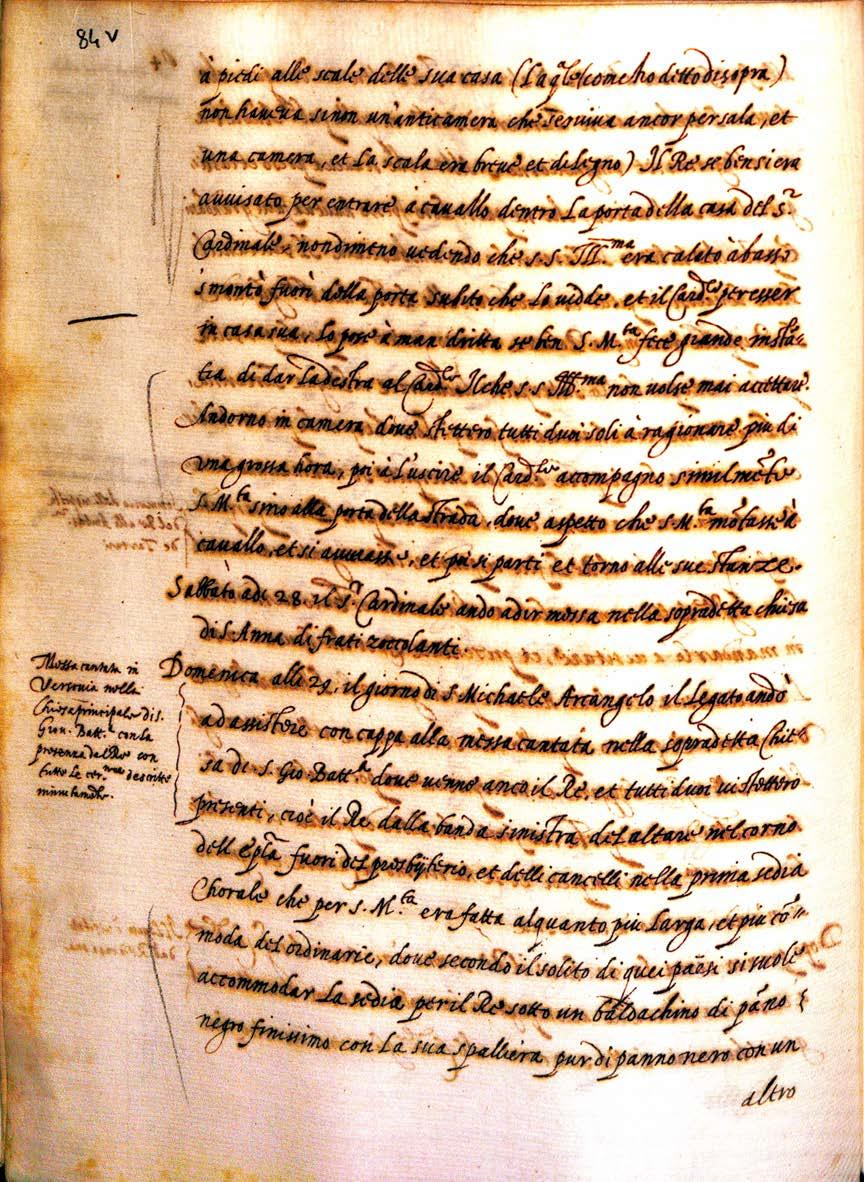 84 v
à piedi alle scale delle sua casa (La q̃le (come ho detto di sopra)
non haueua sinon un'anticamera che seruiua ancor per sala, et
una camera, et La scala era breue et di Legno) Il Re se ben si era
auuisato per entrare à cauallo dentro La porta della casa del s.r
Cardinale, nondimeno uedendo che s.s. Ill.ma era calato à basso
smontò fuori della porta subito che Lo uidde, et il Card.le per esser
in casa sua, Lo pose à man dritta se ben S. M.ta fece grande instã=
tia di dar La destra al Card.le Il che s.s. Ill.ma non uolse mai accettare.
Andorno in camera doue stettero tutti duoi soli à ragionare più di
una grossa hora, poi à L'uscire il Card.le accompagno similmẽte
S. M.ta sino alla porta della strada, doue aspettò che S. M.ta mõtasse à
cauallo, et si auuiasse, et poi si parti et torno alle sue stanze.
Sabbato adi 28. il s.r Cardinale ando a dir messa nella sopradetta chiesa
di S. Anna di frati zoccolanti.
Domenica alli 29. il giorno di S. Michaele Arcangelo il Legato andò
ad assistere con cappa alla messa cantata nella sopradetta Chie=
sa di S. Gio. Batt.a doue uenne anco il Re, et tutti duoi ui stettero
presenti, cioè il Re dalla banda sinistra del altare nel corno
dell'Ep̃la fuori del presbyterio, et delli cancelli nella prima sedia
Chorale che per S. M.ta era fatta alquanto piu Larga, et piu cõ=
moda del ordinario, doue secondo il solito di quei paesi si suole
accommodar La sedia per il Re sotto un baldachino di pãno
negro finissimo con La sua spalliera pur di panno nero con un
altro
Messa cantata in
Versouia nella
Chiesa principale di S.
Giou. Batt.a con la
presenza del Re con
tutte Le cer.nie descritte
minutamẽte.